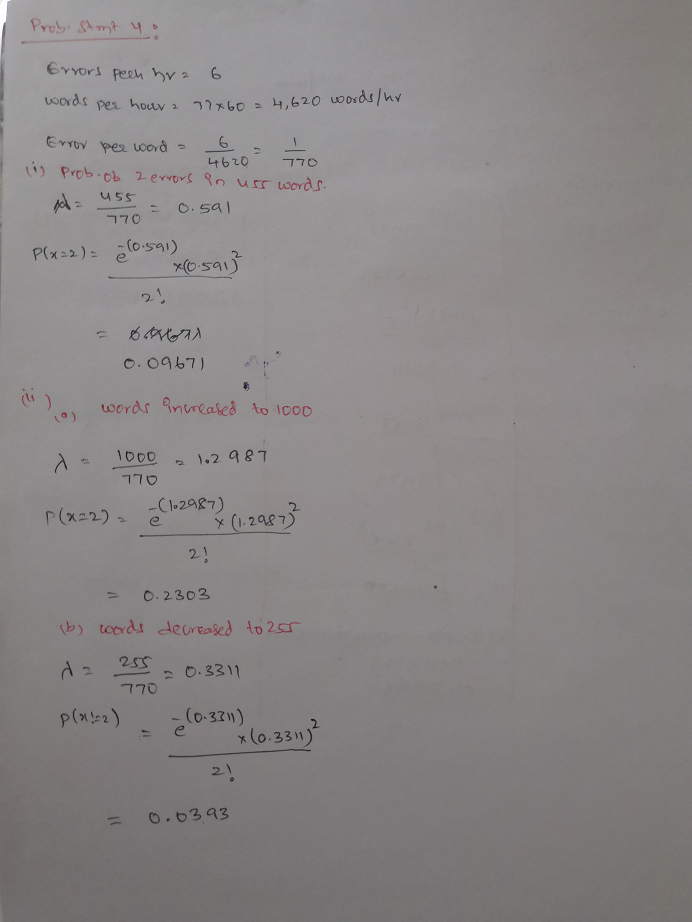 Prob. Stmt 4:
Errors peeh hr = 6
words per hour = 77x60 = 4,620 words/hr
Error per word = 6/4620 = 1/770
(i) Prob. ob 2 errors in 455 words.
λ = 455/770 = 0.591
P(x=2) = e^-(0.591) x(0.591)^2
2!
=
0.09671
(ii)
(a) words increased to 1000
λ = 1000/770 = 1.2987
P(x=2) = e^-(1.2987) x (1.2987)^2
2!
= 0.2303
(b) words decreased to 255
λ = 255/770 = 0.3311
P(x!=2) = e^-(0.3311) x(0.3311)^2
2!
= 0.0393